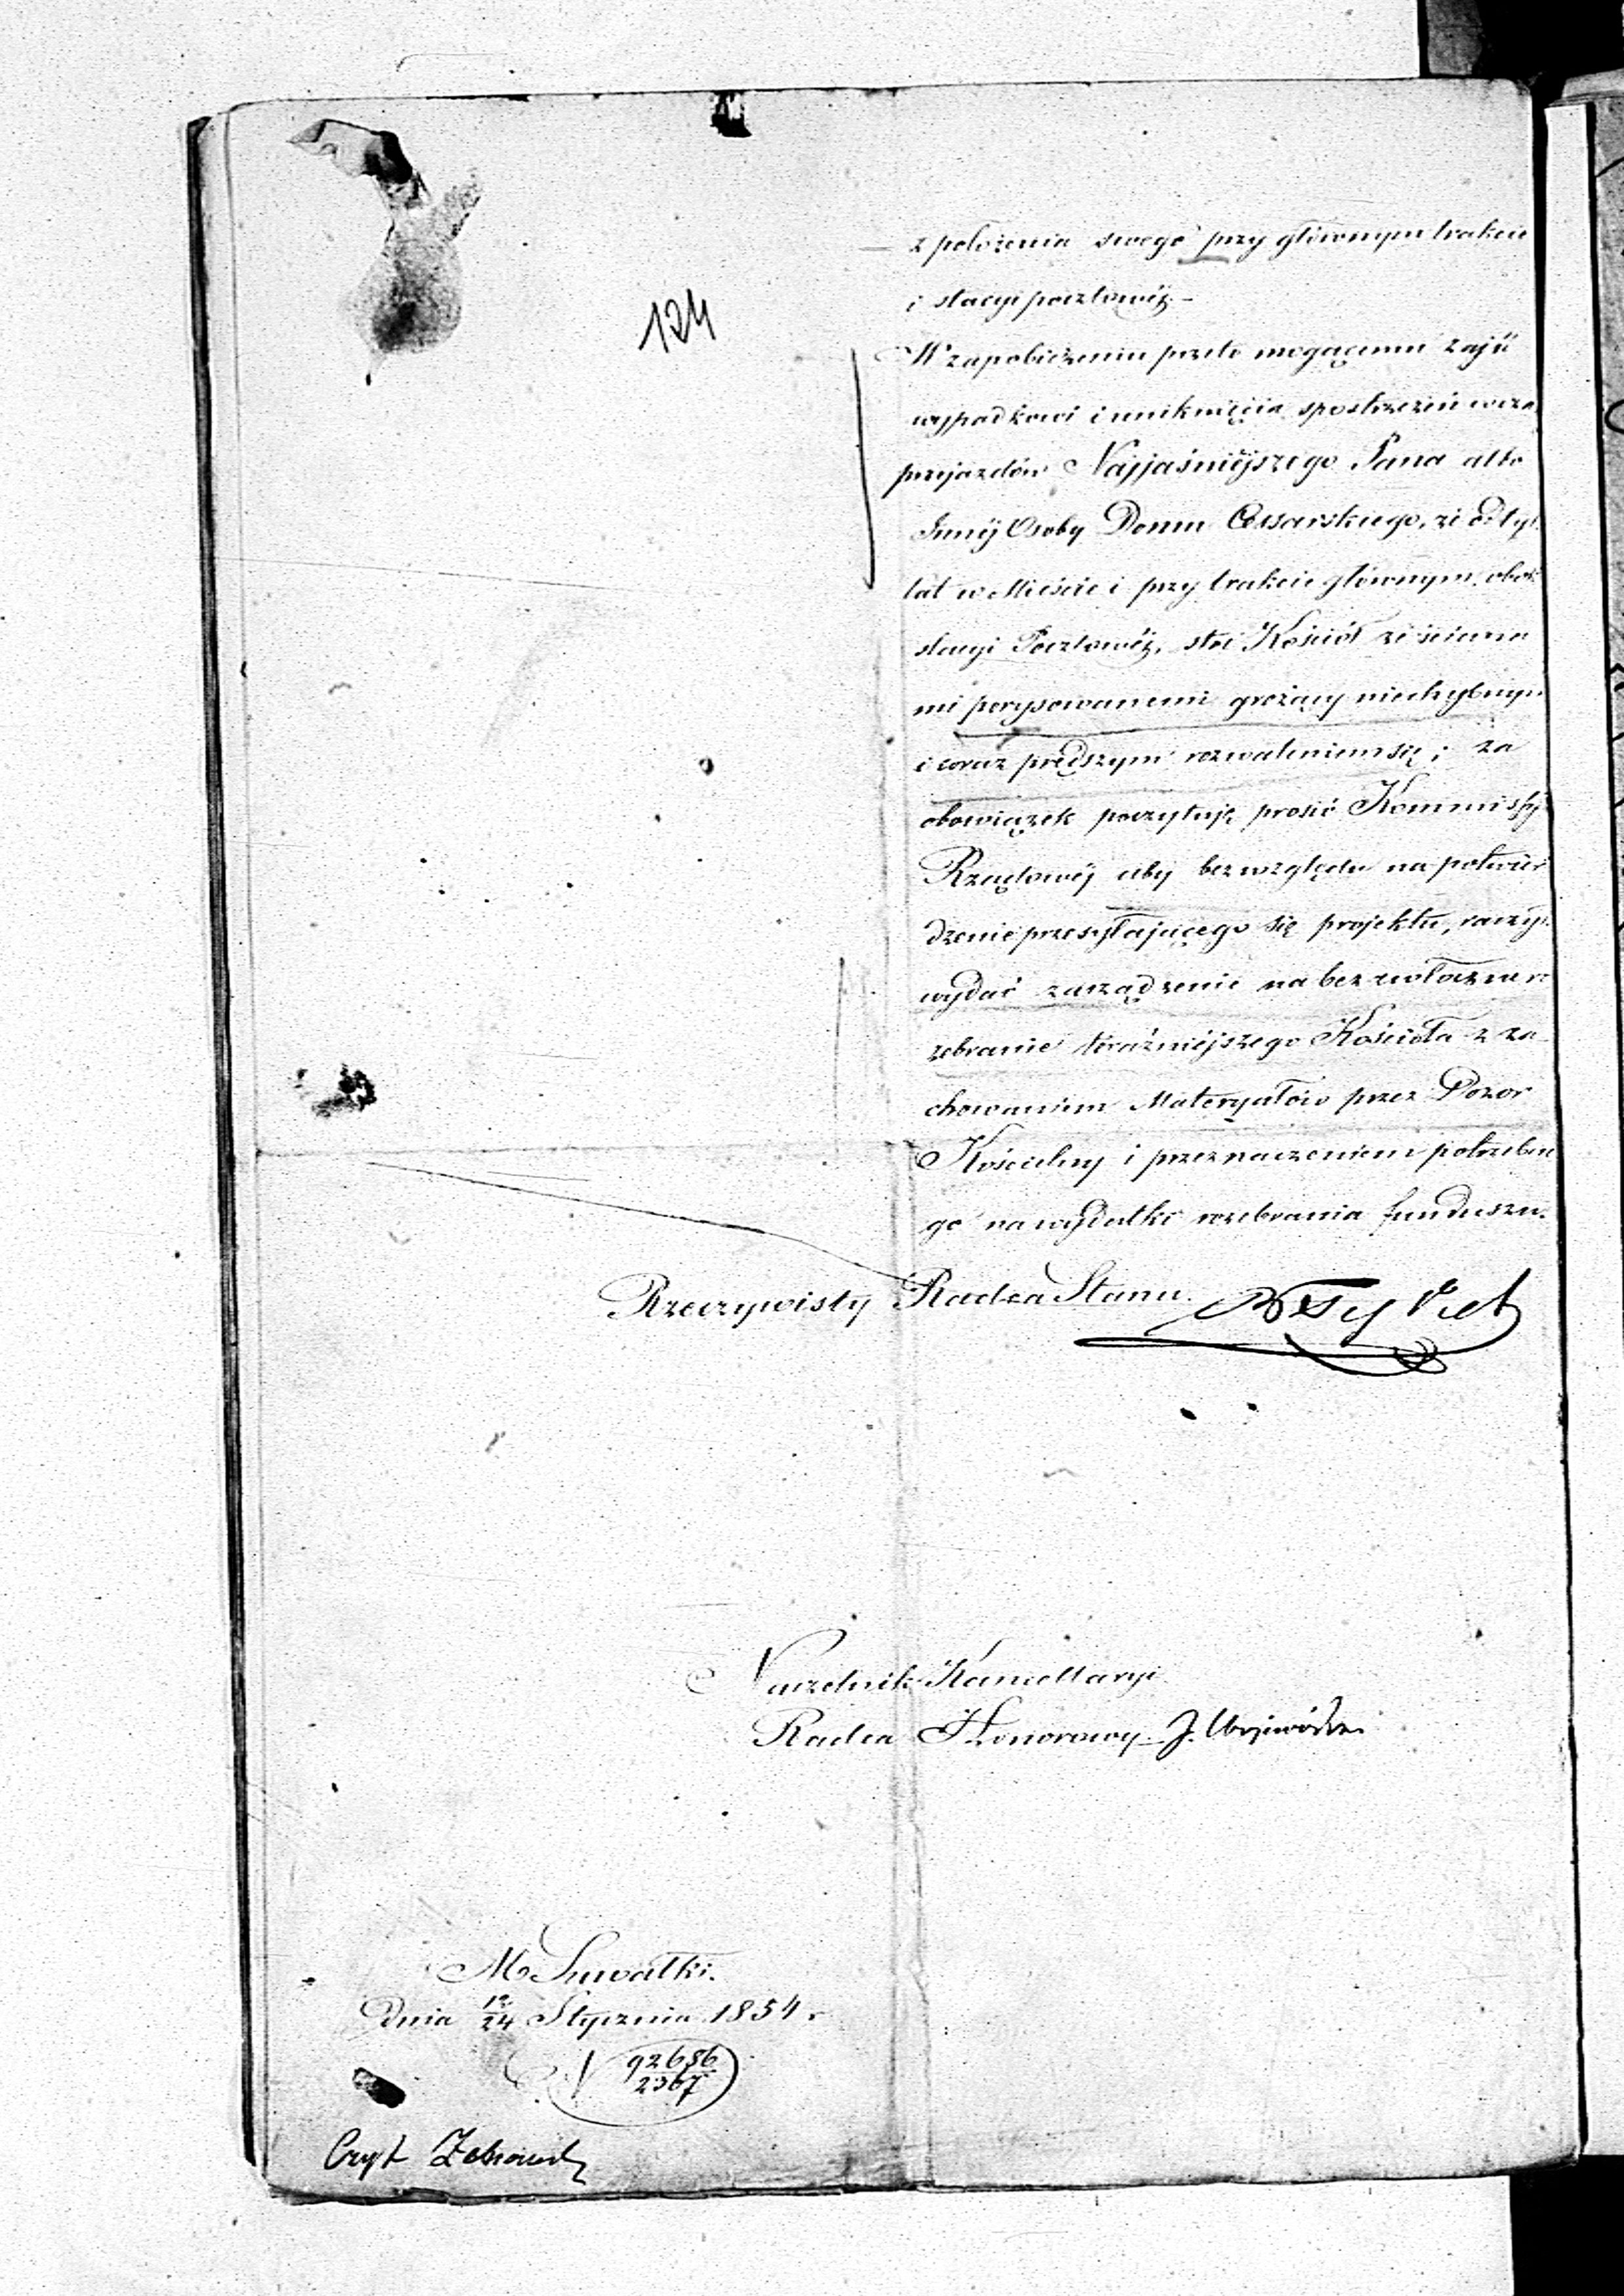 124
z położenia swego przy głównym trakcie
i stacyi pocztowéj. –
W zapobieżeniu przeto mogącemu zajść
wypadkowi i uniknięcia spostrzeżeń w cza
przejazdów Najjaśniéjszego Pana albo
Innéj Osoby Domu Cesarskiego, że od tyl
lat w Mieście i przy trakcie głównym, obok
stacyi Pocztowéj, stoi Kościół ze ściana
mi porysowanemi grożący niechybnym
i coraz prędszym rozwaleniem się; za
obowiązek poczytuję prosić Kommissyi
Rządowéj aby bez względu na potwier
dzenie przesyłającego się projektu, raczył
wydać zarządzenie na bezzwłoczne ro
zebranie teraźniéjszego Kościoła z za
chowaniem Materyałów przez Dozor
Kościelny i przeznaczeniem potrzebne
go na wydatki rozebrania funduszu.
Rzeczywisty Radca Stanu.
Naczelnik Kancellaryi
Radca Honorowy J.
M Suwałki.
Dnia 12/24 Stycznia 1854 r
N 92686/2367
Czyt